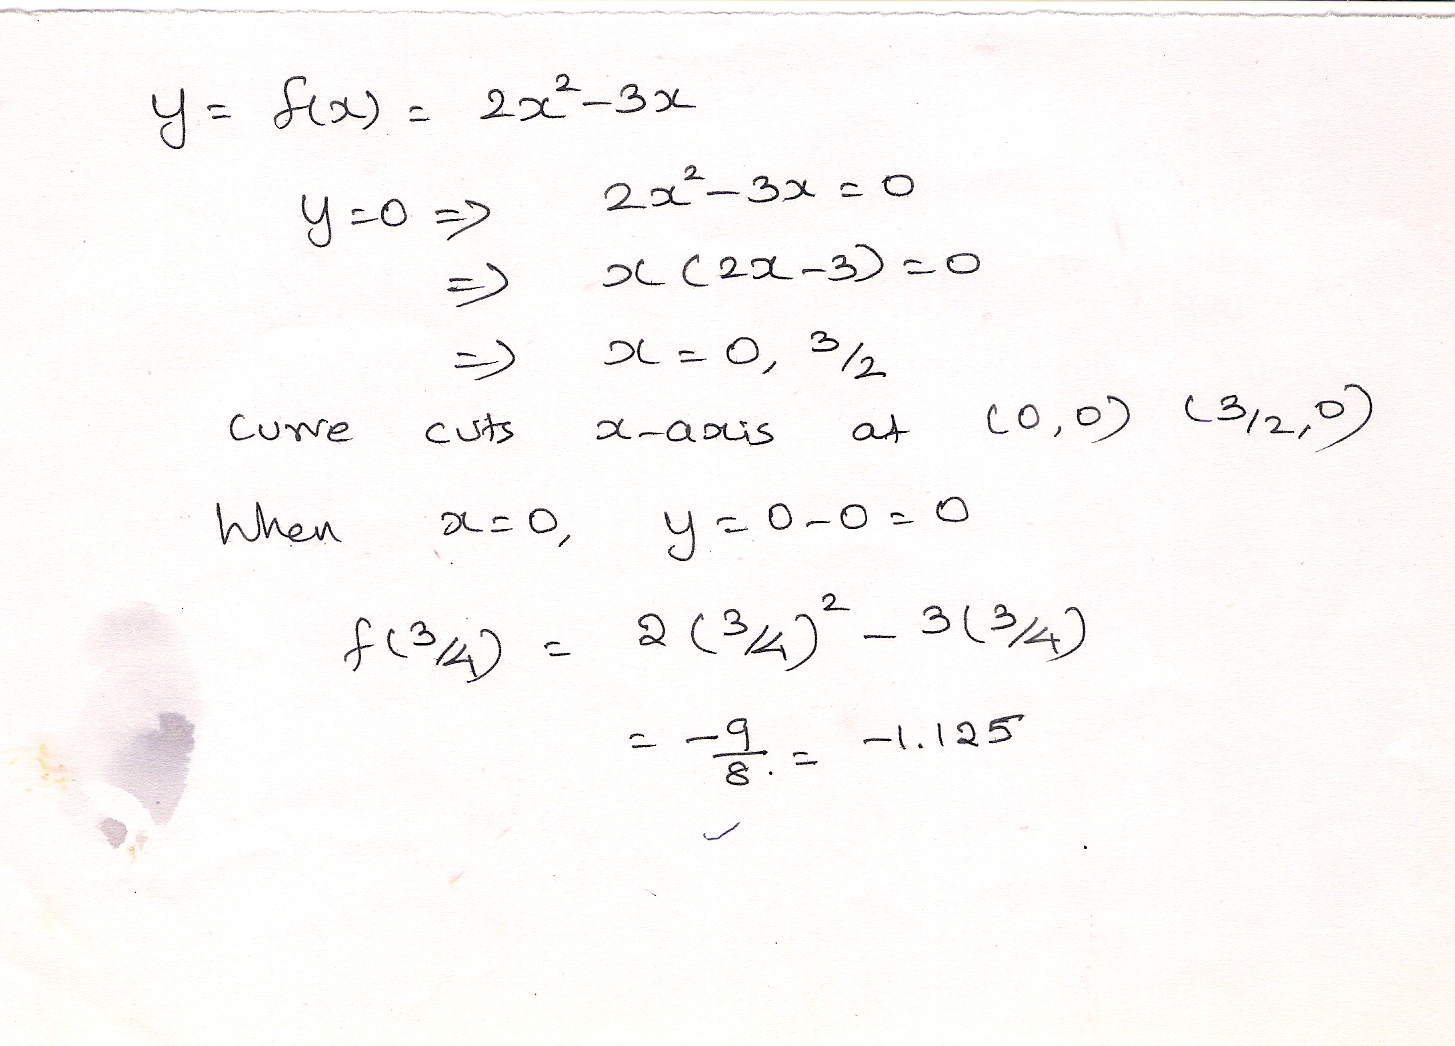 y = f(x) = 2x²-3x
y=0 => 2x²-3x = 0
=> x(2x-3) = 0
=> x = 0, 3/2
curve cuts x-axis at (0,0) (3/2,0)
When x=0, y = 0-0 = 0
f(3/4) = 2(3/4)² - 3(3/4)
= -9/8. = -1.125